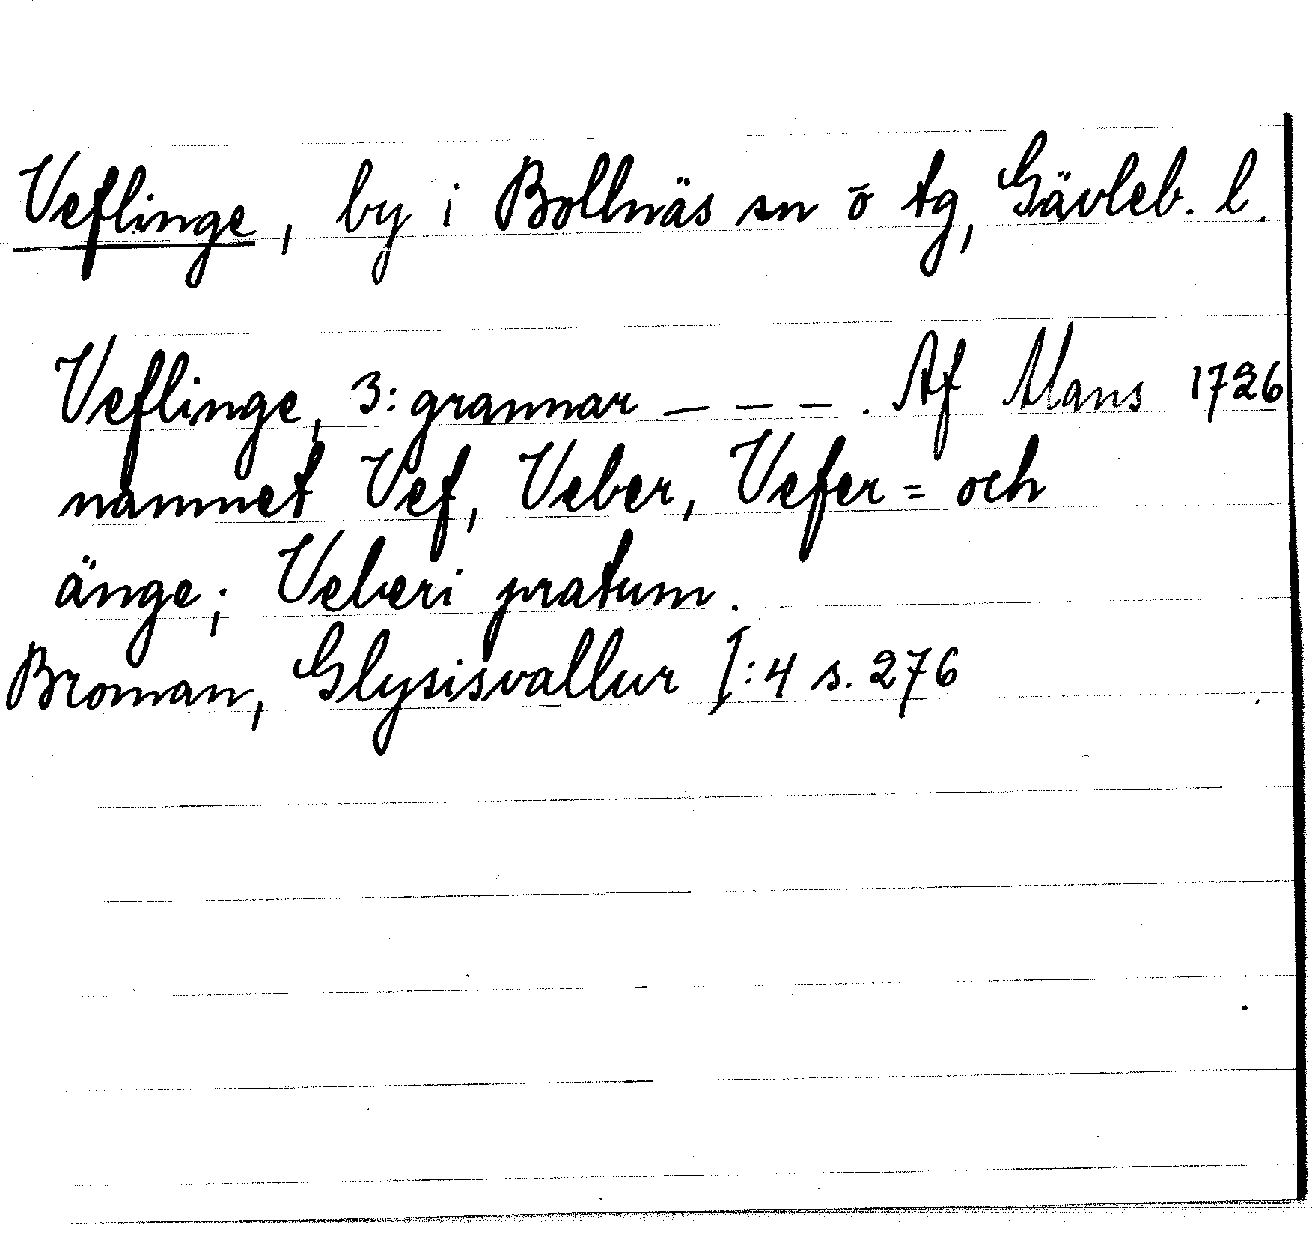 Veflinge, by i Bollnäs sn ö tg, Gävleb. l.
Veflinge, 3: grannar – – – . Af Mans 1726
namnet Vef, Veber, Vefer = och
änge; Veberi pratum.
Broman, Glysisvallur I:4 s. 276